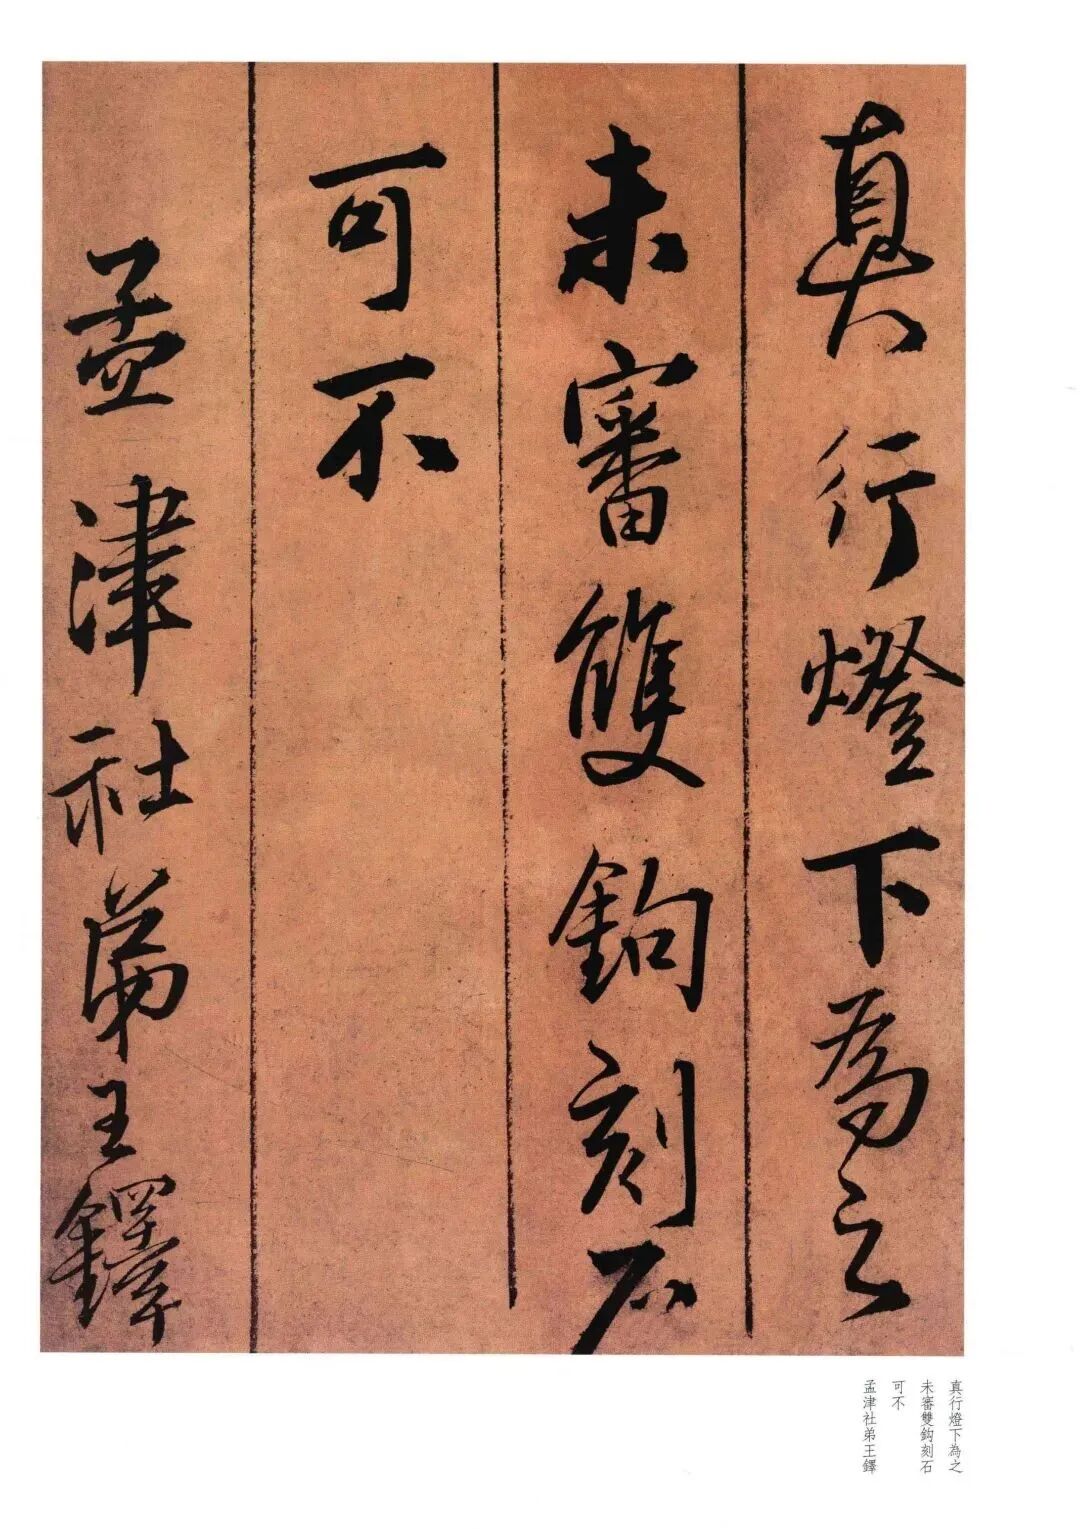 真行燈下為之
未審雙鈎刻石
可不
孟津社弟王鐸
真行燈下為之
未審雙鈎刻石
可不
孟津社弟王鐸